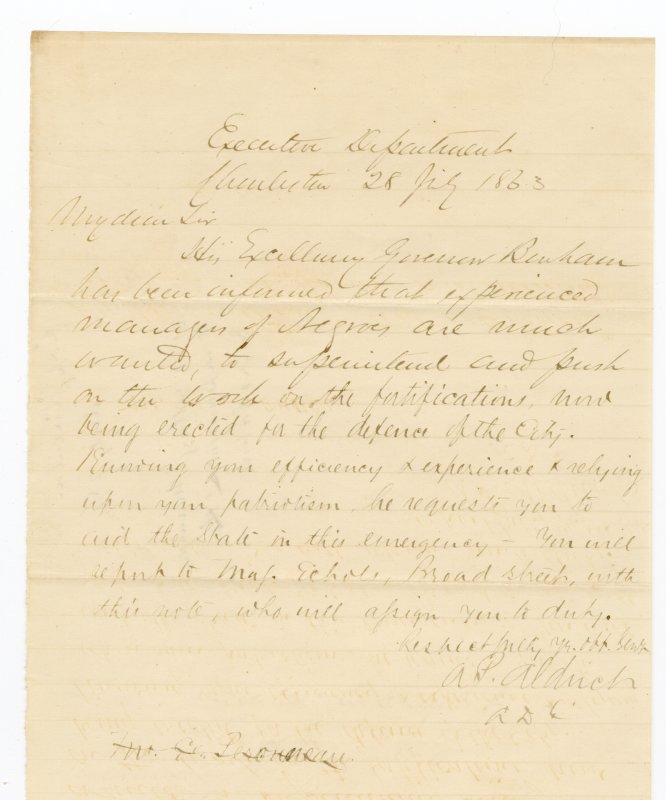 Executive Department
Charleston 28 July 1863
My dear Sir
His Excellency Governor Bonham
has been informed that experienced
managers of Negroes are much
wanted, to superintend and push
on the work on the fortifications, now
being erected for the defence of the City.
Knowing your efficiency & experience & relying
upon your patriotism, he requests you to
aid the State in this emergency – You will
report to Maj. Echols, Broad Street, with
this note, who will assign you to duty.
Respectfully yr. obt. Servt
A.P. Aldrich
A D C
Peronneau